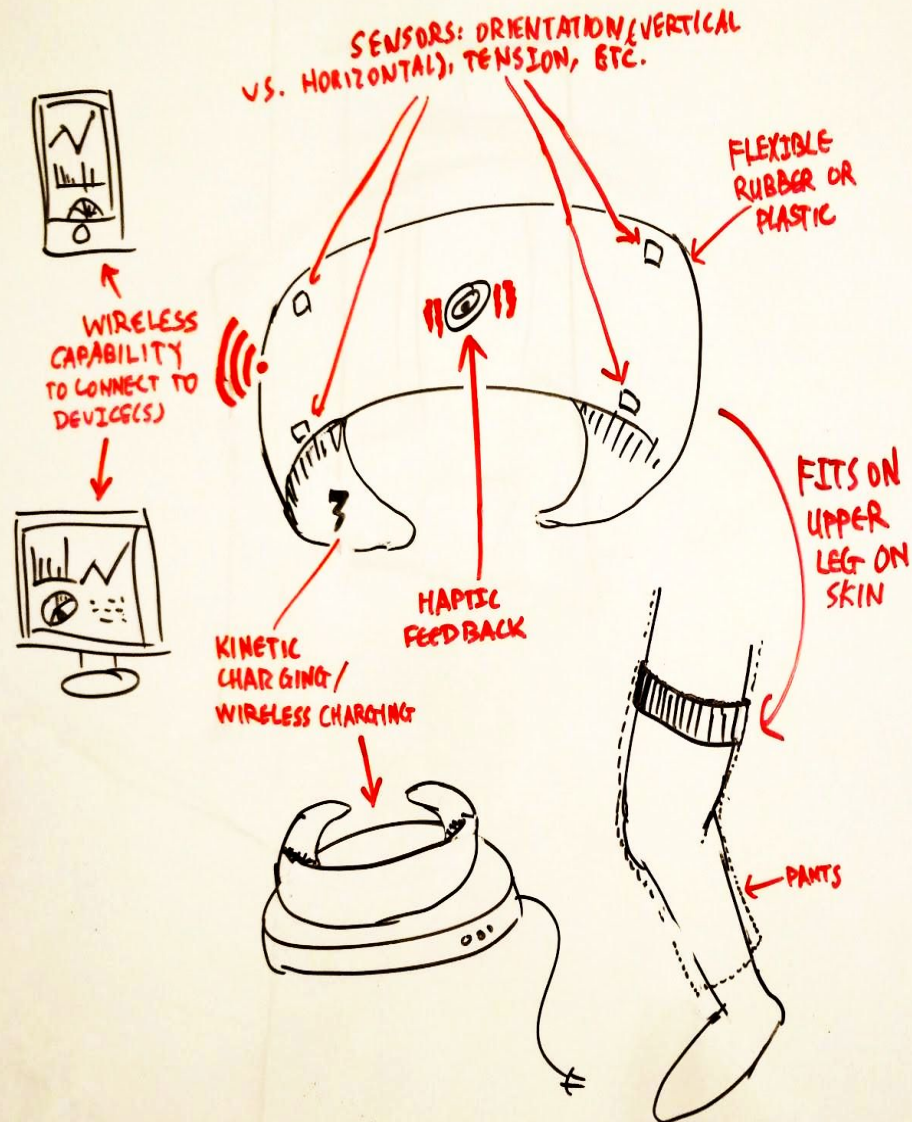 SENSORS: ORIENTATION (VERTICAL
VS. HORIZONTAL), TENSION, ETC.
FLEXIBLE
RUBBER OR
PLASTIC
WIRELESS
CAPABILITY
TO CONNECT TO
DEVICE(S)
FITS ON
UPPER
LEG ON
SKIN
HAPTIC
FEEDBACK
KINETIC
CHARGING/
WIRELESS CHARGING
PANTS